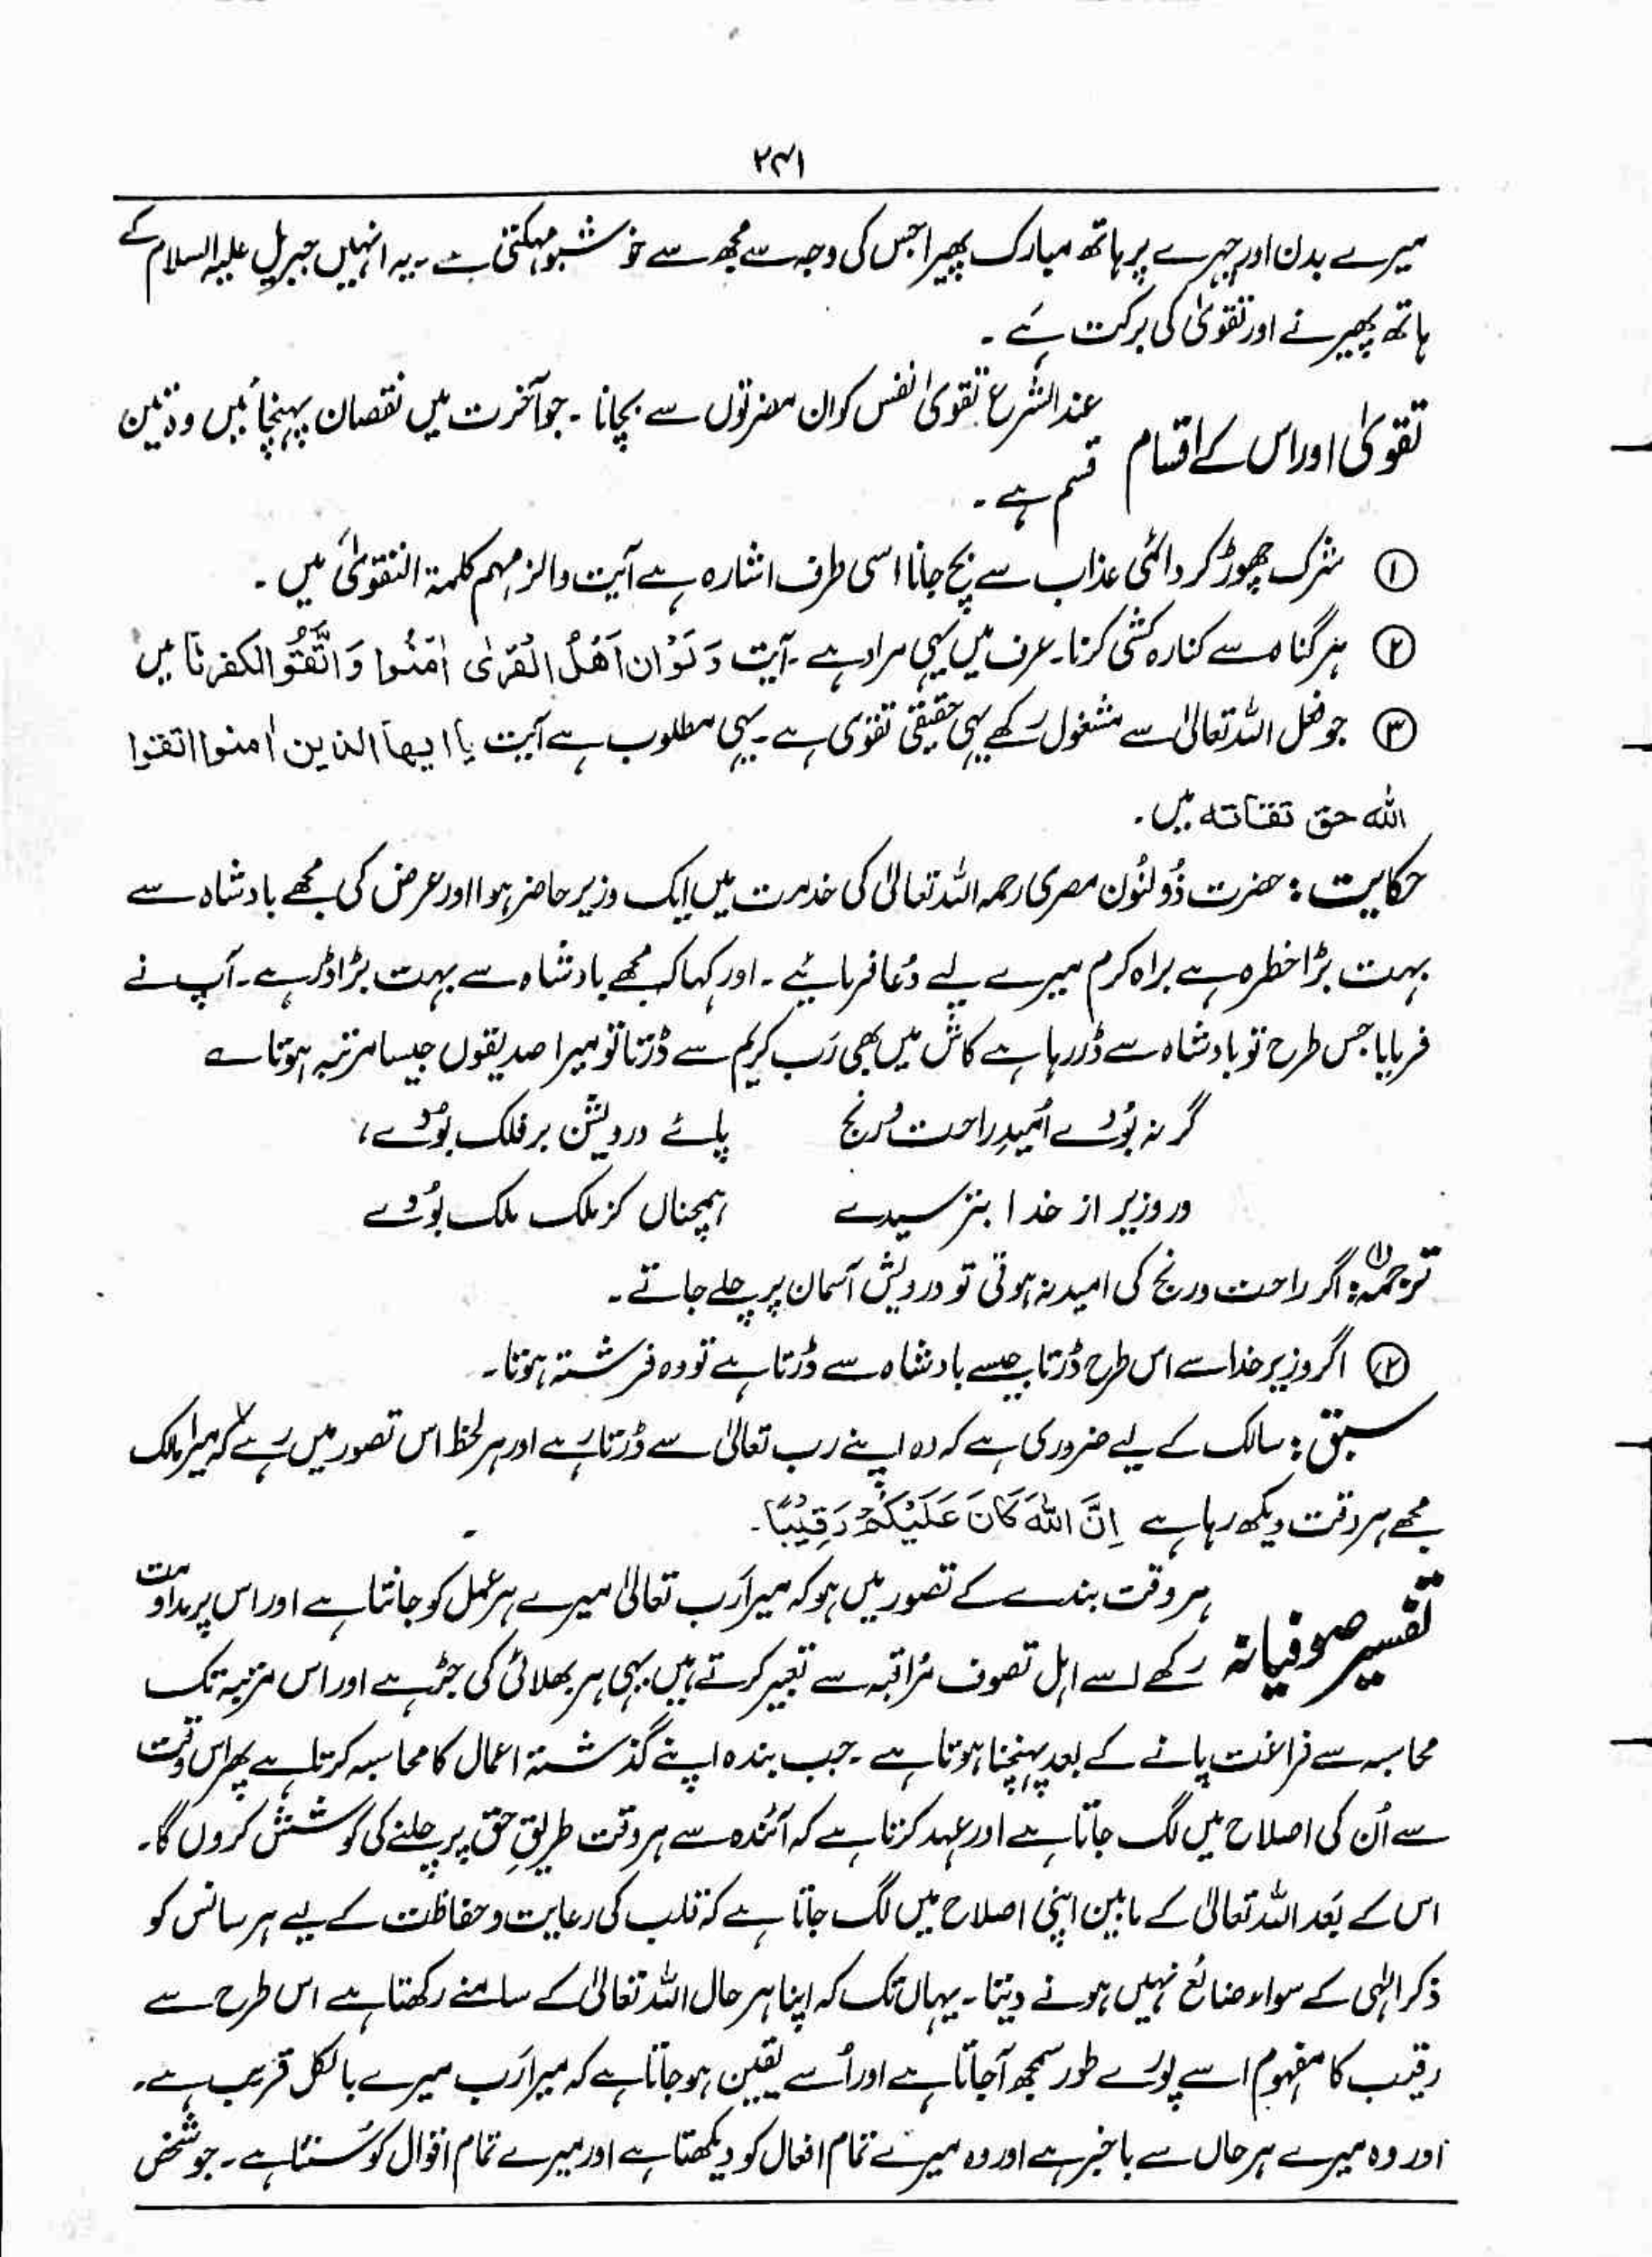 ۲۴۱
میرے بدن اور چہرے پر ہاتھ مبارک پھیرا جس کی وجہ سے مجھ سے خوشبو مہکتی ہے ۔ یہ انہیں جبریل علیہ السلام کے
ہاتھ پھیرنے اور تقویٰ کی برکت ہے ۔
تقویٰ اور اس کے اقسام عند الشرع تقویٰ نفس کو ان مضرتوں سے بچانا ۔ جو آخرت میں نقصان پہنچائیں وہ تین
قسم ہے ۔
① شرک چھوڑ کر دائمی عذاب سے بچ جانا اسی طرف اشارہ ہے آیت والزمہم کلمۃ التقویٰ میں ۔
② ہر گناہ سے کنارہ کشی کرنا ۔ عرف میں یہی مراد ہے ۔ آیت وَلَوْ ان اَھْلُ الْقُرٰی اٰمَنُوا وَاتَّقُوْالکفرنا میں
③ جو فعل اللہ تعالیٰ سے مشغول رکھے یہی حقیقی تقویٰ ہے ۔ یہی مطلوب ہے آیت یا ایھا الذین اٰمنوا اتقوا
اللہ حق تقاتہ میں ۔
حکایت : حضرت ذُولنُون مصری رحمہ اللہ تعالیٰ کی خدمت میں ایک وزیر حاضر ہوا اور عرض کی مجھے بادشاہ سے
بہت بڑا خطرہ ہے براہ کرم میرے لیے دُعا فرمائیے ۔ اور کہا کہ مجھے بادشاہ سے بہت بڑا ڈر ہے ۔ آپ نے
فرمایا جس طرح تو بادشاہ سے ڈر رہا ہے کاش میں بھی رَب کریم سے ڈرتا تو میرا صدیقوں جیسا مرتبہ ہوتا ؎
گر نہ بُودے اُمیدِ راحت و رنج پائے درویش بر فلک بُودے،
ور وزیر از خدا بترسیدے ہمچناں کز ملک ملک بُودے
ترجمہ (۱): اگر راحت و رنج کی امید نہ ہوتی تو درویش آسمان پر چلے جاتے ۔
② اگر وزیر خدا سے اس طرح ڈرتا جیسے بادشاہ سے ڈرتا ہے تو وہ فرشتہ ہوتا ۔
سبق : سالک کے لیے ضروری ہے کہ وہ اپنے رب تعالیٰ سے ڈرتا رہے اور ہر لحظ اس تصور میں رہے کہ میرا مالک
مجھے ہر وقت دیکھ رہا ہے اِنَّ اللّٰہَ کَانَ عَلَیْکُمْ رَقِیْبًا ۔
تفسیر صوفیانہ ہر وقت بندے کے تصور میں ہو کہ میرا رَب تعالیٰ میرے ہر عمل کو جانتا ہے اور اس پر مداومت
رکھے اسے اہل تصوف مُراقبہ سے تعبیر کرتے ہیں یہی ہر بھلائی کی جڑ ہے اور اس مرتبہ تک
محاسبہ سے فراغت پانے کے بعد پہنچنا ہوتا ہے ۔ جب بندہ اپنے گذشتہ اعمال کا محاسبہ کرتا ہے پھر اس وقت
سے اُن کی اصلاح میں لگ جاتا ہے اور عہد کرتا ہے کہ آئندہ سے ہر وقت طریقِ حق پر چلنے کی کوشش کروں گا ۔
اس کے بَعد اللہ تعالیٰ کے مابین اپنی اصلاح میں لگ جاتا ہے کہ قلب کی رعایت و حفاظت کے لیے ہر سانس کو
ذکر الٰہی کے سواء ضائع نہیں ہونے دیتا ۔ یہاں تک کہ اپنا ہر حال اللہ تعالیٰ کے سامنے رکھتا ہے اس طرح سے
رقیب کا مفہوم اسے پورے طور سمجھ آجاتا ہے اور اُسے یقین ہو جاتا ہے کہ میرا رَب میرے بالکل قریب ہے ۔
اور وہ میرے ہر حال سے باخبر ہے اور وہ میرے تمام افعال کو دیکھتا ہے اور میرے تمام اقوال کو سُنتا ہے ۔ جو شخص